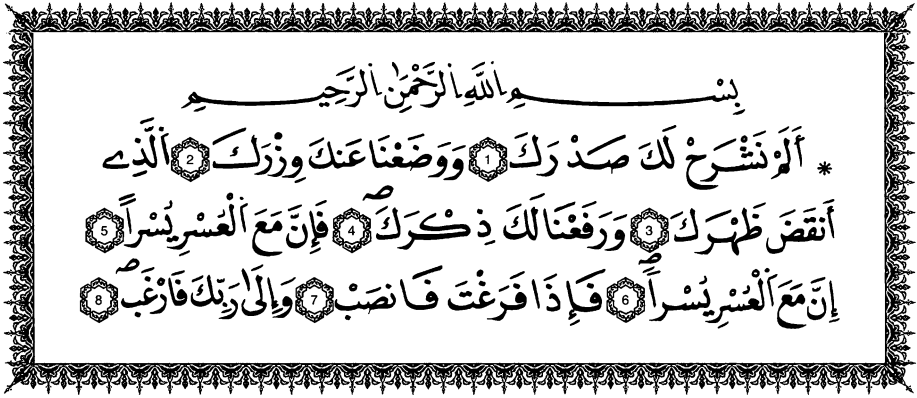 بِسْمِ اِ۬للَّهِ اِ۬لرَّحْمَٰنِ اِ۬لرَّحِيمِ
* أَلَمْ نَشْرَحْ لَكَ صَدْرَكَ 1 وَوَضَعْنَا عَنكَ وِزْرَكَ 2 اَ۬لَّذِے
أَنقَضَ ظَهْرَكَ 3 وَرَفَعْنَا لَكَ ذِكْرَكَۖ 4 فَإِنَّ مَعَ اَ۬لْعُسْرِ يُسْراً 5
إِنَّ مَعَ اَ۬لْعُسْرِ يُسْراٗۖ 6 فَإِذَا فَرَغْتَ فَانصَبْ 7 وَإِلَىٰ رَبِّكَ فَارْغَبۖ 8